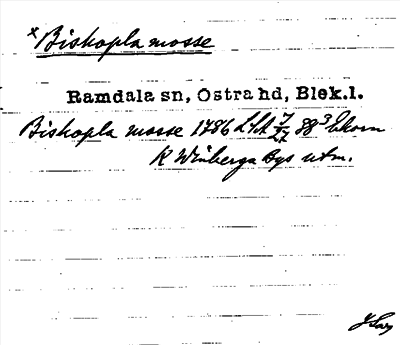 ×Biskopla mosse
Ramdala sn, Östra hd, Blek.l.
Biskopla mosse 1786 LSA 7/27 88³ Ekorn
K Winberga Bys utm.